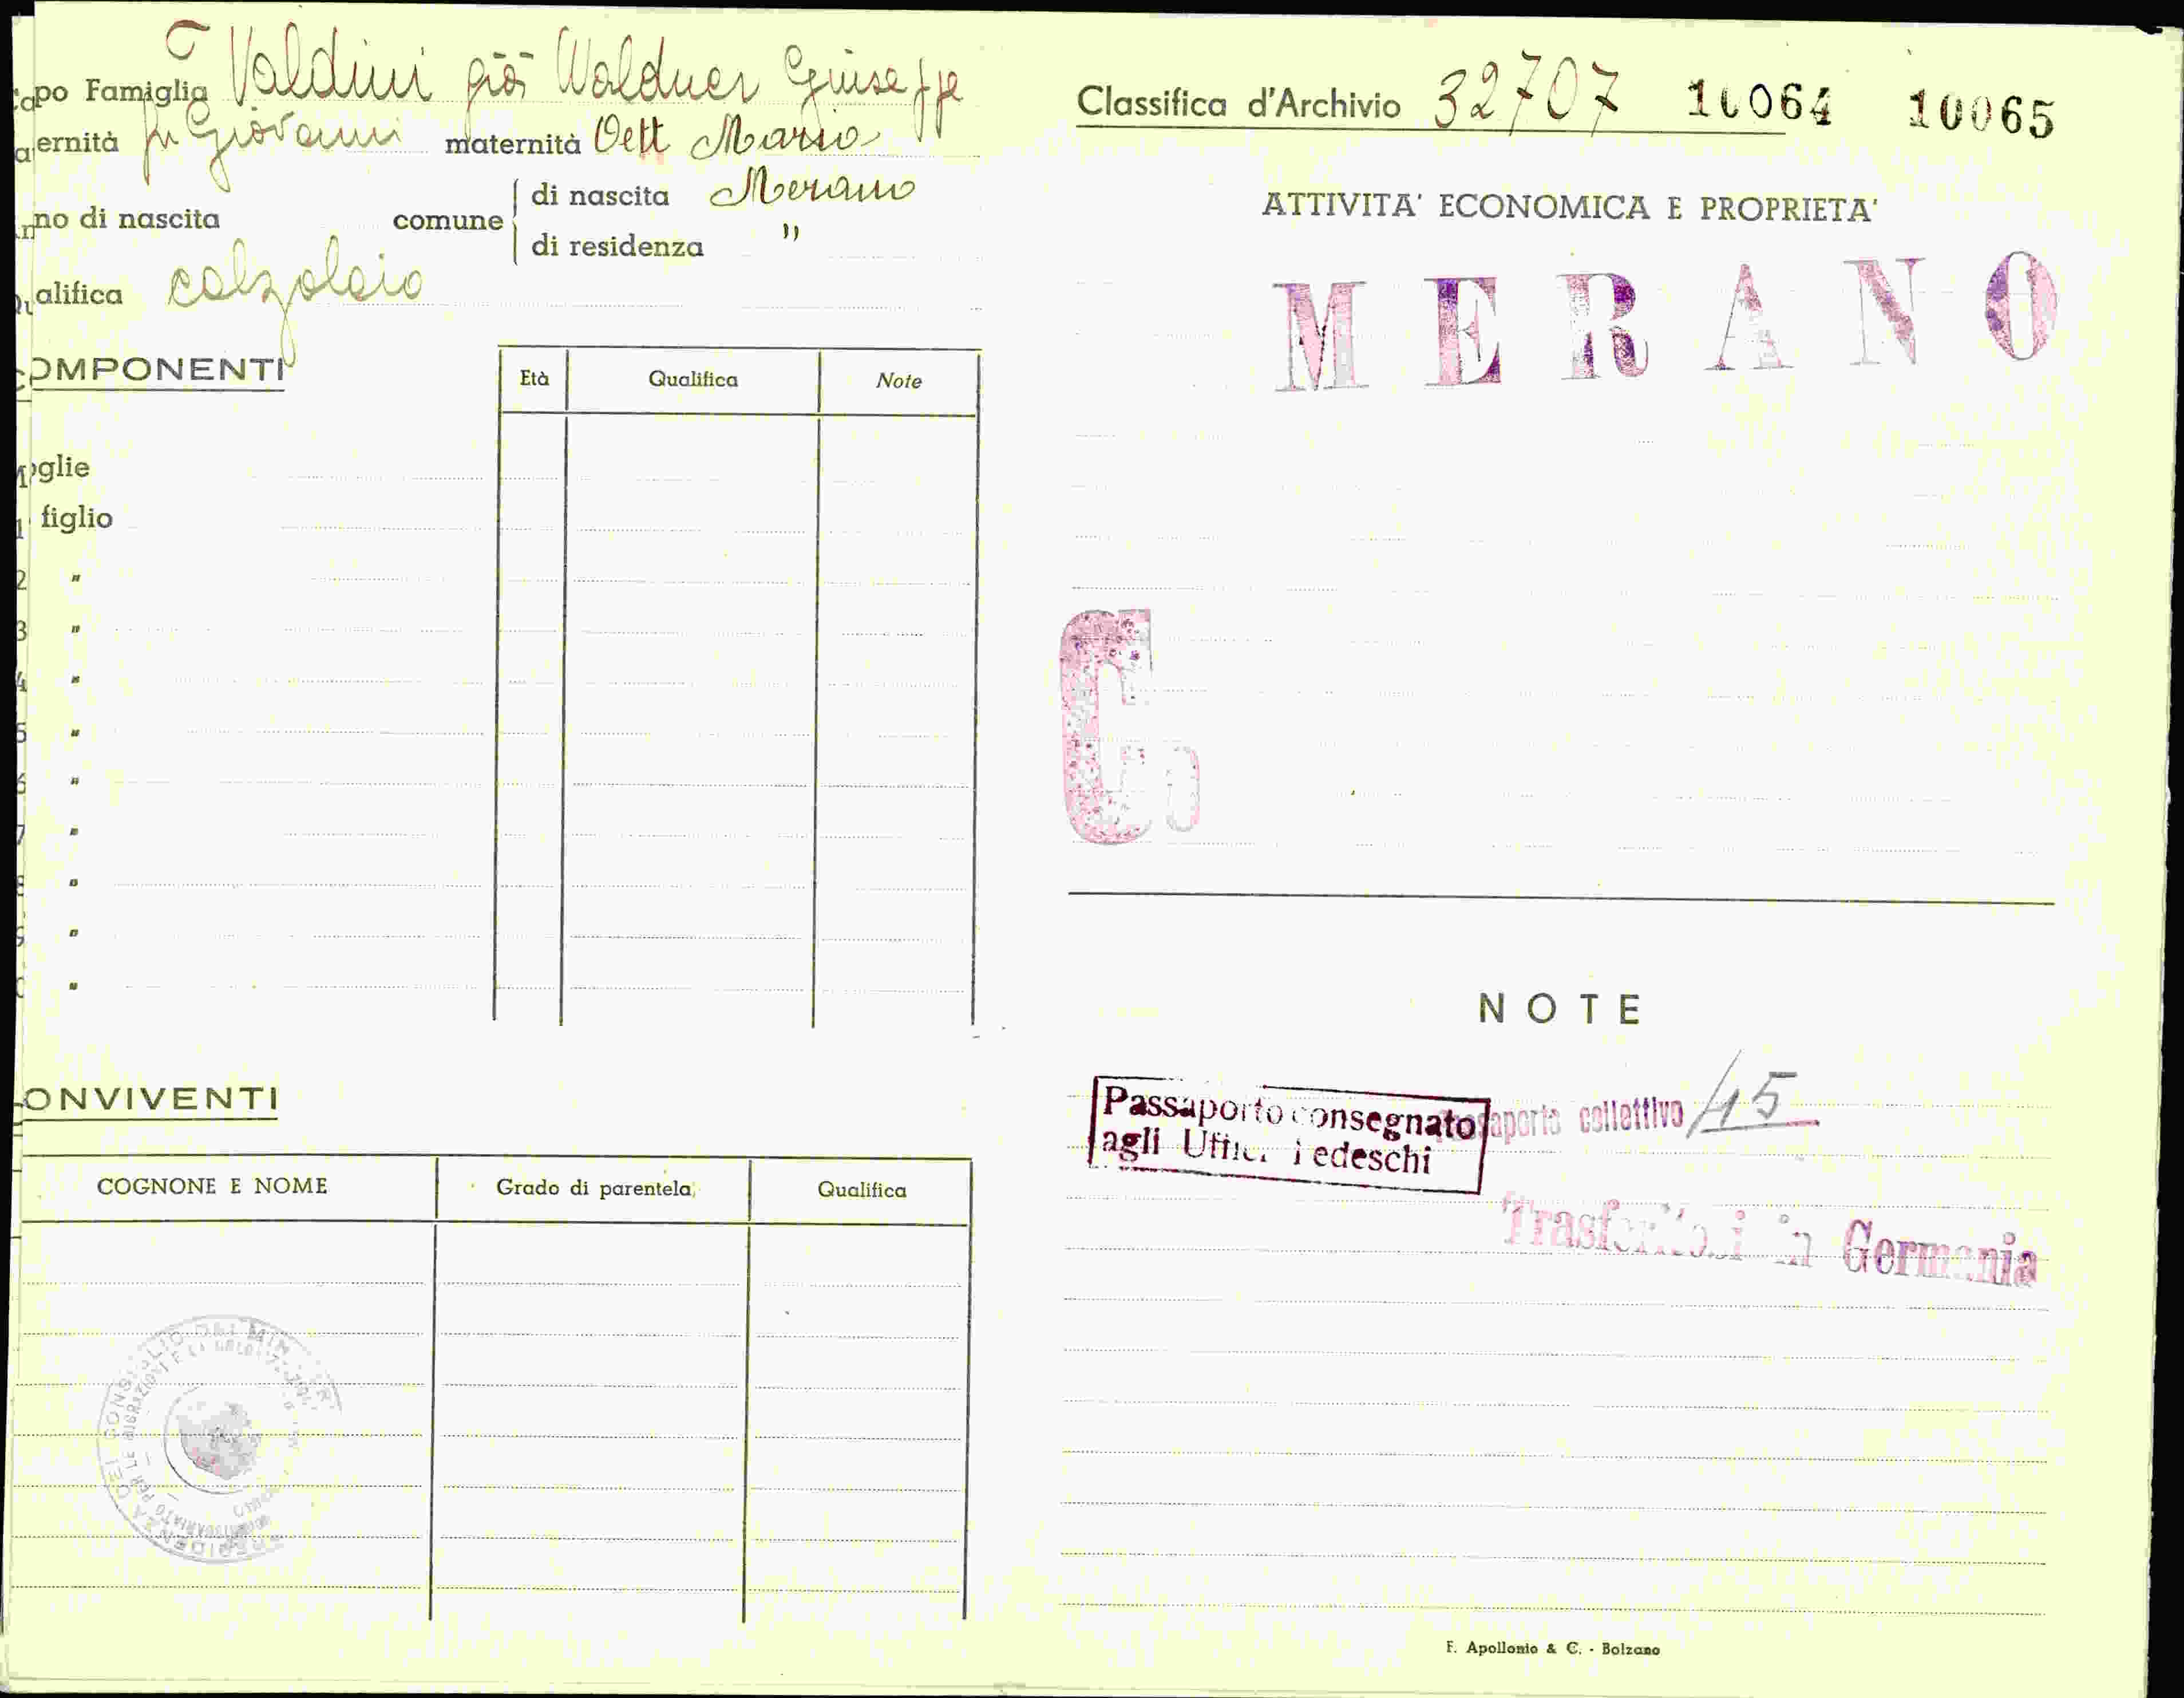 Capo Famiglia Valdini già Walduer Giuseppe
aternità fu Giovanni maternità Oett Maria
nno di nascita comune di nascita Merano
di residenza "
Qualifica calzolaio
COMPONENTI
Età Qualifica Note
Moglie
1 figlio
2 "
3 "
4 "
5 "
6 "
7 "
8 "
9 "
"
CONVIVENTI
COGNONE E NOME Grado di parentela Qualifica
Classifica d'Archivio 32707 10064 10065
ATTIVITA' ECONOMICA E PROPRIETA'
MERANO
C
NOTE
Passaporto consegnato
agli Uffici Tedeschi
collettivo 15
Trasferitosi in Germania
F. Apollonio & C. - Bolzano